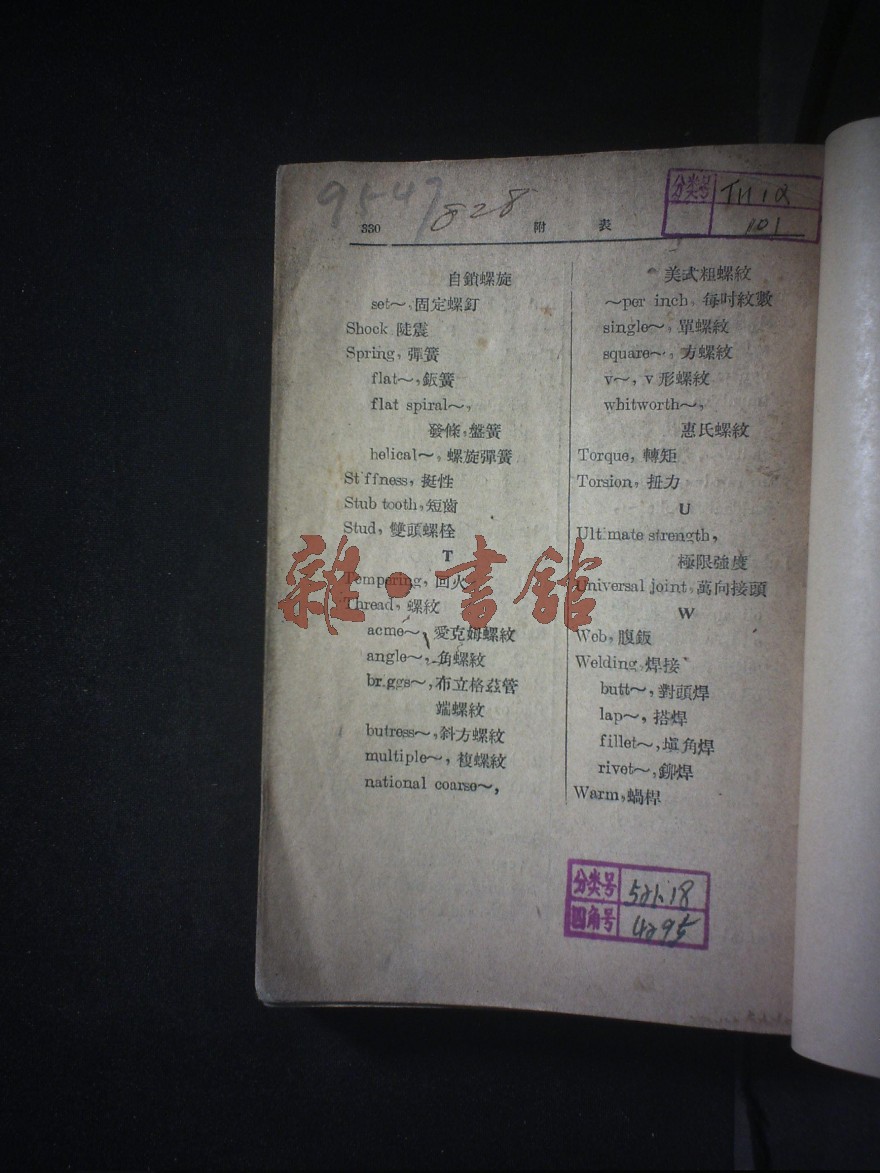 9547
828
分类号 TH12
101
330 附 表
自鎖螺旋
set～,固定螺釘
Shock 陡震
Spring, 彈簧
flat～,鈑簧
flat spiral～,
發條,盤簧
helical～, 螺旋彈簧
Stiffness, 挺性
Stub tooth,短齒
Stud, 雙頭螺栓
T
Tempering, 回火
Thread, 螺紋
acme～, 愛克姆螺紋
angle～,角螺紋
briggs～,布立格茲管
端螺紋
butress～,斜方螺紋
multiple～, 複螺紋
national coarse～,
美式粗螺紋
～per inch, 每吋紋數
single～, 單螺紋
square～, 方螺紋
v～, v 形螺紋
whitworth～,
惠氏螺紋
Torque, 轉矩
Torsion, 扭力
U
Ultimate strength,
極限強度
Universal joint,萬向接頭
W
Web, 腹鈑
Welding,焊接
butt～,對頭焊
lap～, 搭焊
fillet～,塡角焊
rivet～,鉚焊
Warm,蝸桿
雜·書館
分类号 521.18
四角号 4295